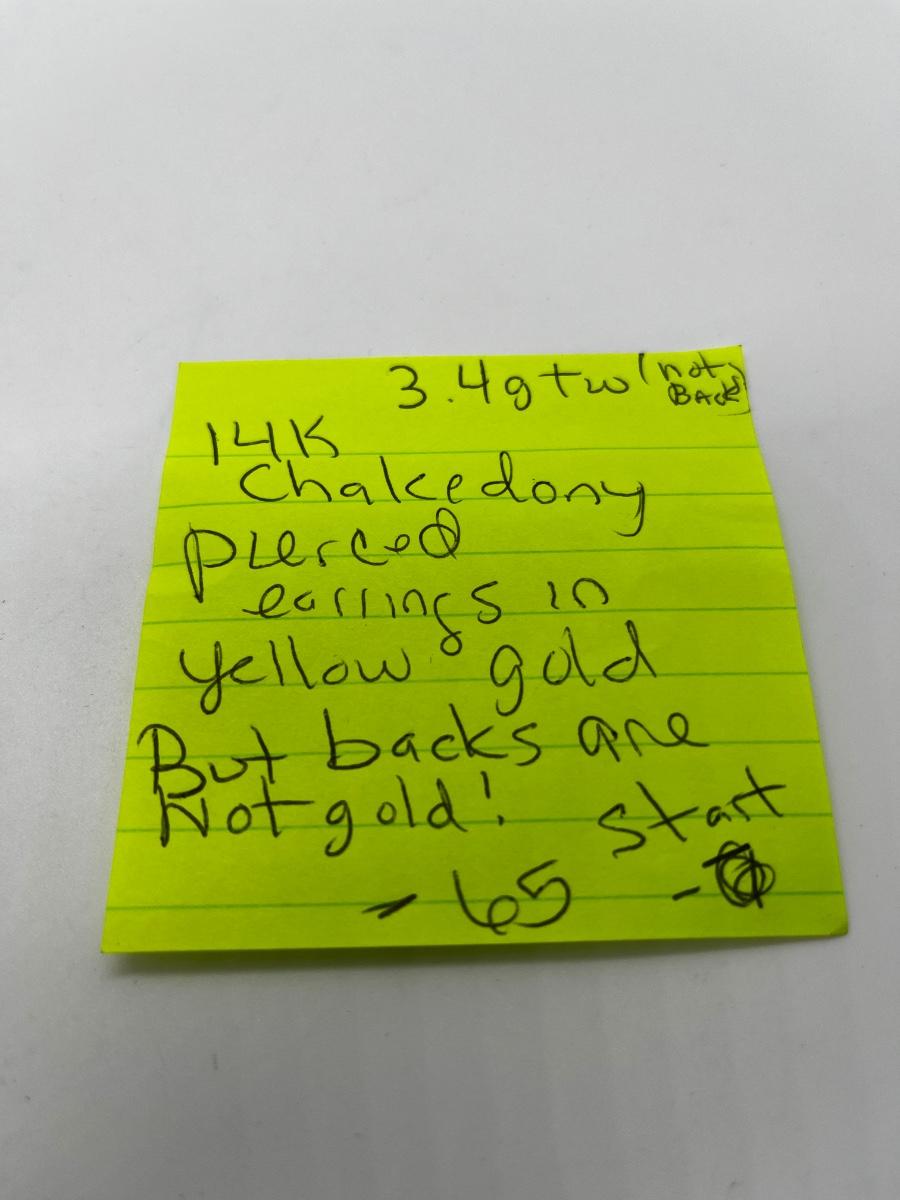 3.4g tw (not
Back)
14K
Chalcedony
pierced
earrings in
yellow gold
But backs are
Not gold!
start
- 65 -